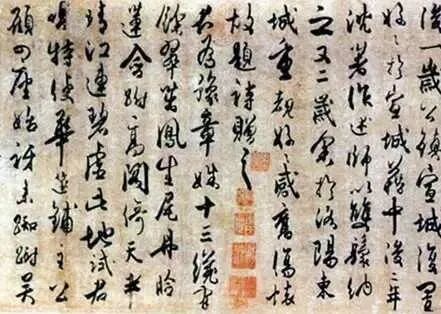 後一歲公鎮宣城復置
好〻於宣城籍中後二年
沈著作述師以雙鬟納
之又二歲余於洛陽東
城重覩好〻感舊傷懷
故題詩贈之
君為豫章姝十三纔有
餘翠茁鳳生尾丹臉
蓮含跗高閣倚天半
晴江連碧虛此地試君
唱特使華筵鋪主公
顧四座始訝来踟蹰吳